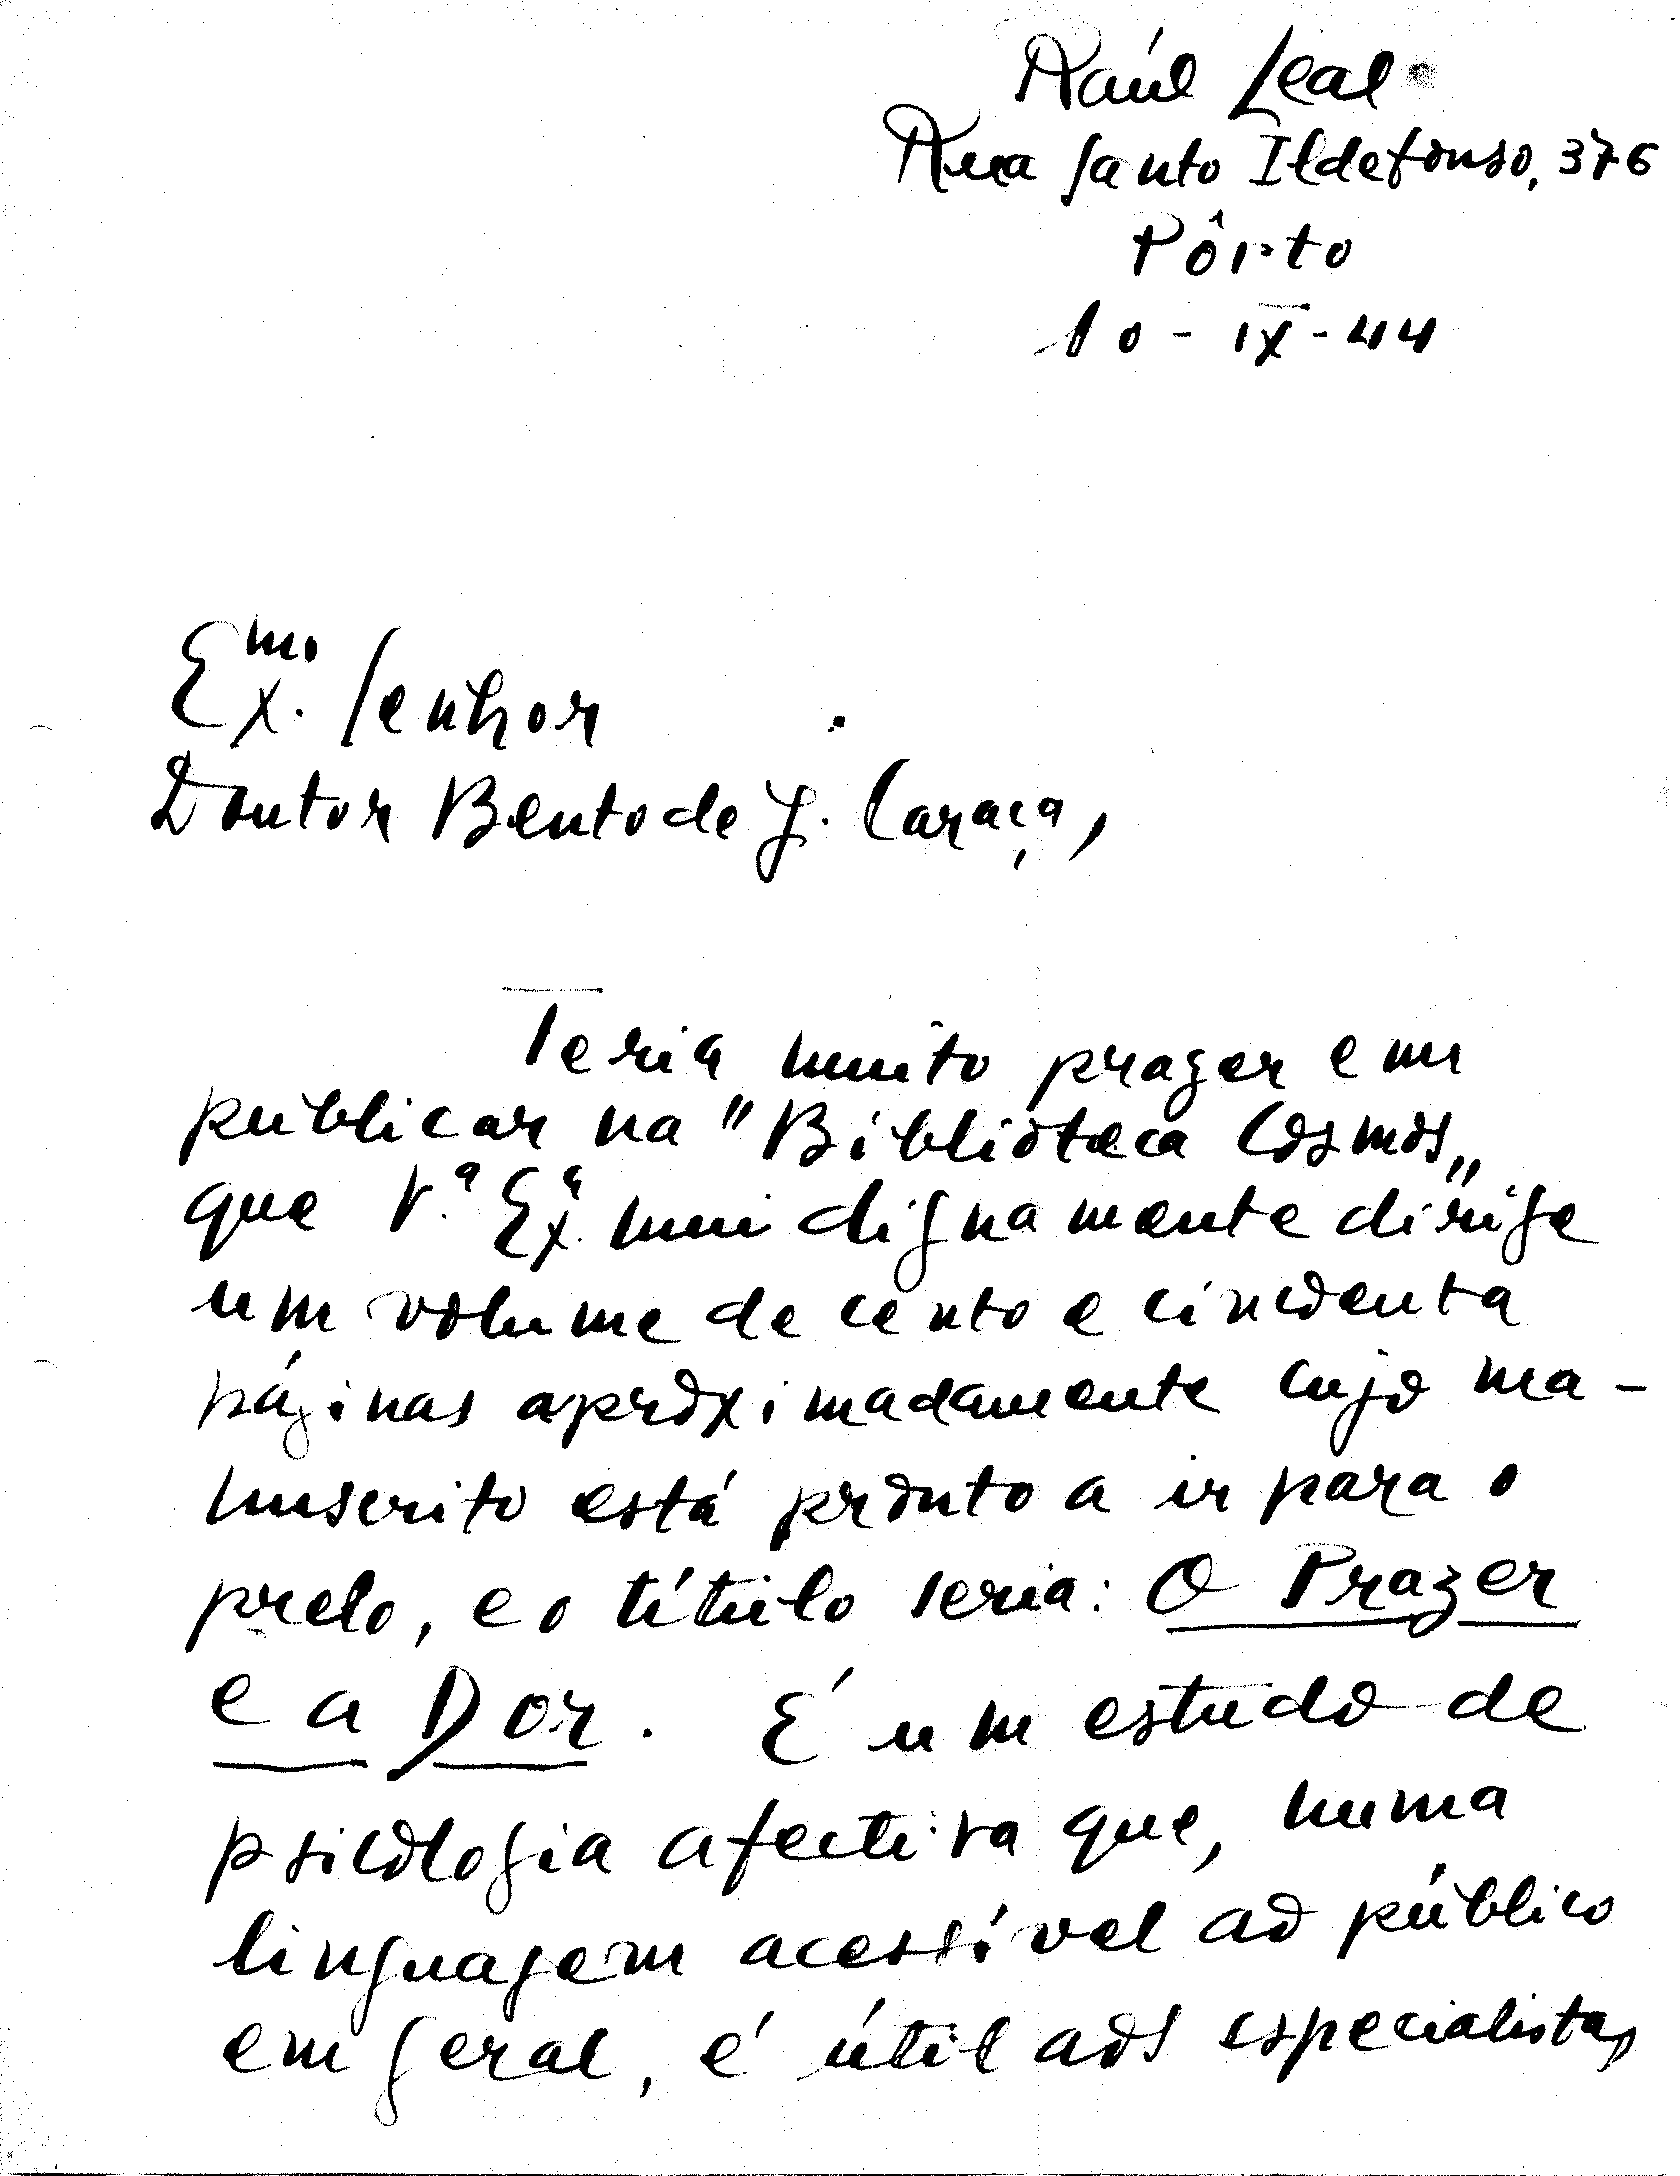 Raúl Leal
Rua Santo Ildefonso, 376
Pôrto
10-IX-44
Exmo. Senhor
Doutor Bento de J. Caraça,
Teria muito prazer em
publicar na "Biblioteca Cosmos„
que V.ª Ex.ª mui dignamente dirige
um volume de cento e cincoenta
páginas aproximadamente cujo ma-
nuscrito está pronto a ir para o
prelo, e o título seria: O Prazer
e a Dor. É um estudo de
psicologia afectiva que, numa
linguagem acessível ao público
em geral, é útil aos especialistas,